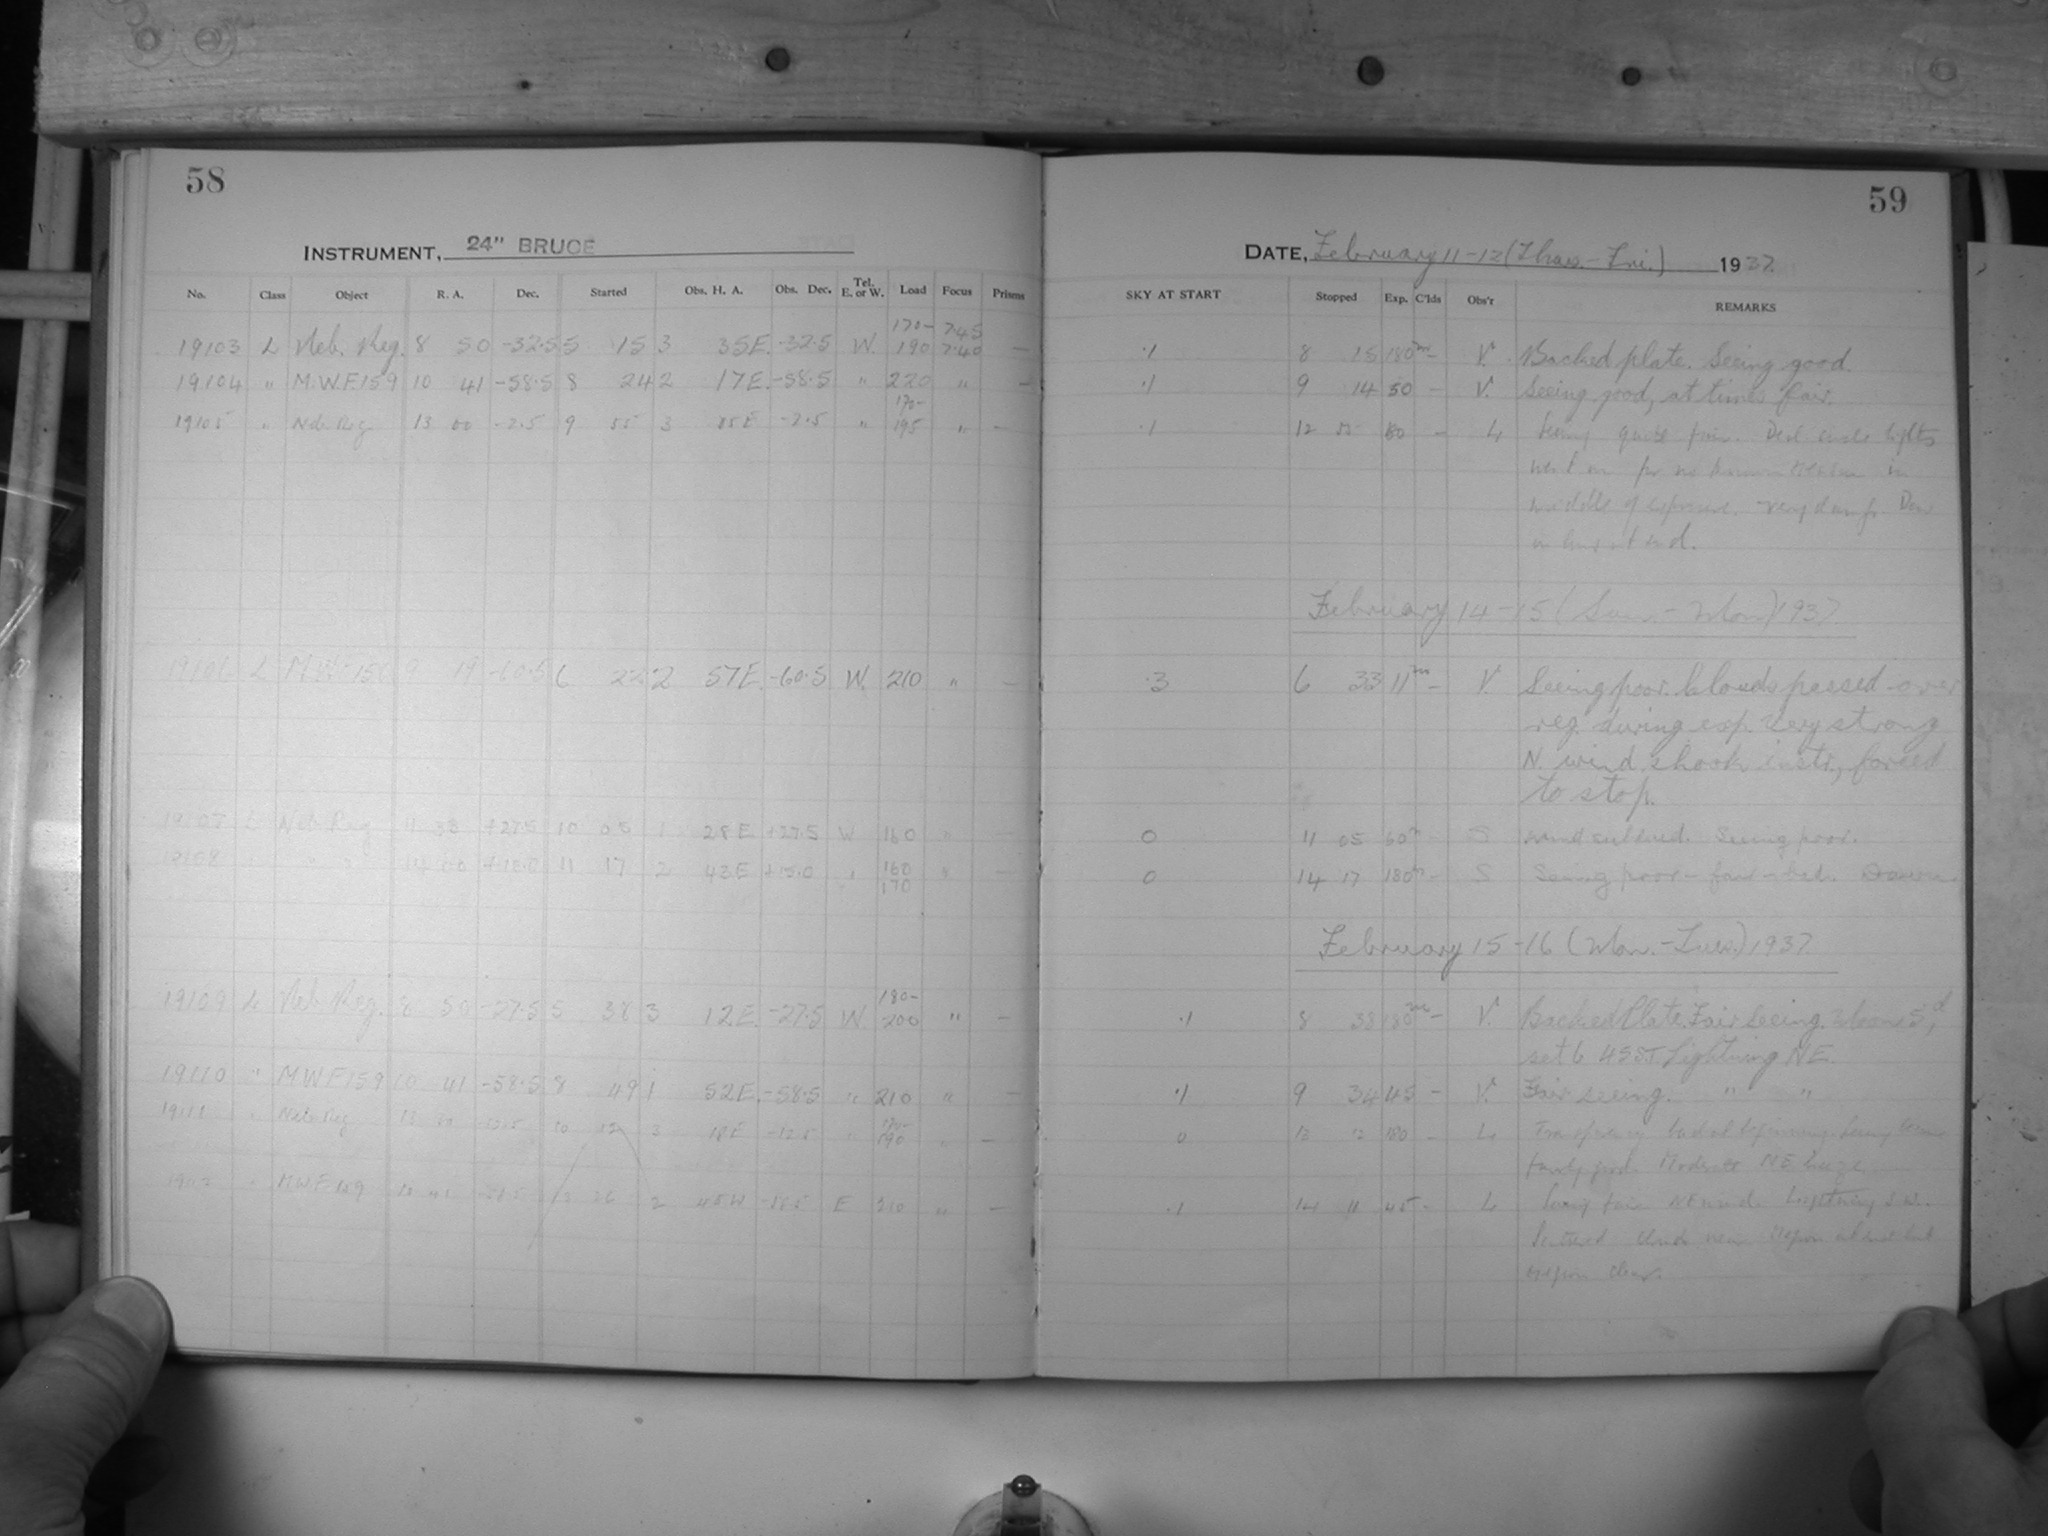 58
INSTRUMENT, 24" BRUCE
No. Class Object R. A. Dec. Started Obs. H. A. Obs. Dec. Tel. E. or W. Load Focus Prisms
19103 L Neb. Reg. 8 50 -32.5 5 15 3 35E. -32.5 W. 170-190 7.45 7.40 —
19104 " M.W.F.159 10 41 -58.5 8 24 2 17E. -58.5 " 220 " —
19105 " Neb. Reg 13 00 -2.5 9 55 3 E -2.5 " 170-195 " —
19106 L 9 19 -60.5 6 22 2 57E. -60.5 W. 210 " —
19107 L Neb Reg 38 +27.5 10 05 1 28E +27.5 W 160 " —
19108 " " " 14 00 +15.0 11 17 2 43E +15.0 " 160 170 " —
19109 L Neb. Reg. 8 50 -27.5 5 38 3 12E. -27.5 W. 180-200 " —
19110 " MWF159 10 41 -58.5 8 49 1 52E. -58.5 " 210 " —
19111 " Neb Reg 13 -12.5 10 12 3 18E -12.5 " 170-190 " —
MWF 159 10 41 -58.5 13 26 2 45W -58.5 E 210 " —
59
DATE, February 11-12 (Thurs.-Fri.) 1937
SKY AT START Stopped Exp. C'lds Obs'r REMARKS
.1 8 15 180m — V. Backed plate. Seeing good.
.1 9 14 50 — V. Seeing good, at times fair.
.1 12 55 180 — L Seeing quite fair. Decl circle lights
went on for no known reason in
middle of exposure. Very damp. Dew
at end.
February 14-15 (Sun.-Mon) 1937
.3 6 33 11m — V. Seeing poor. Clouds passed over
reg. during exp. Very strong
N. wind, shook instr., forced
to stop.
0 11 05 60m — S Wind subsided. Seeing poor.
0 14 17 180m — S Seeing poor - fair
February 15-16 (Mon.-Tues.) 1937
.1 8 38 180m — V. Backed Plate. Fair Seeing. Moon 5d,
set 6 45ST. Lightning NE.
.1 9 34 45 — V. Fair seeing. " "
0 13 12 180 — L Transparency bad at beginning. Seeing
fairly good. Moderate NE breeze
.1 14 11 45 — L Seeing fair NE wind. Lightning S.W.
Scattered clouds near region at end but
region clear.